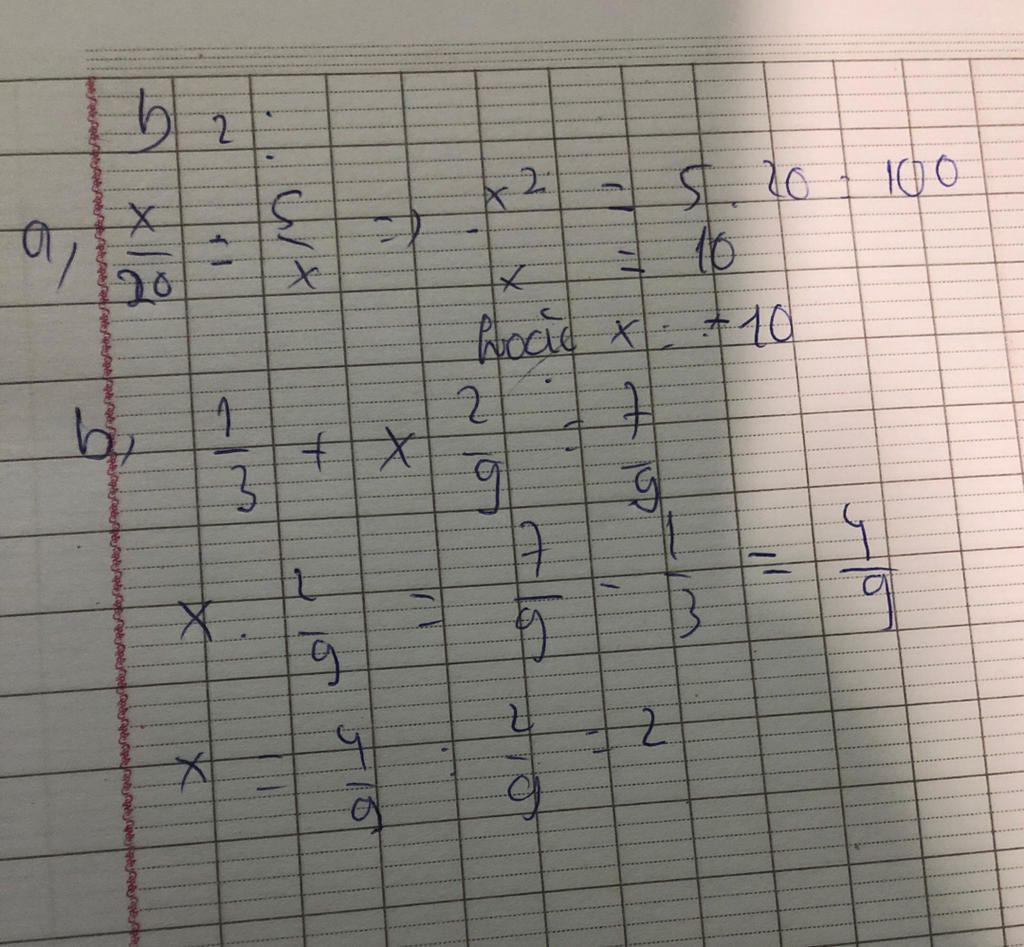 b 2 :
a, x/20 = 5/x => x² = 5 . 20 = 100
x = 10
hoặc x = -10
b, 1/3 + x 2/9 = 7/9
x . 2/9 = 7/9 - 1/3 = 4/9
x = 4/9 : 2/9 = 2